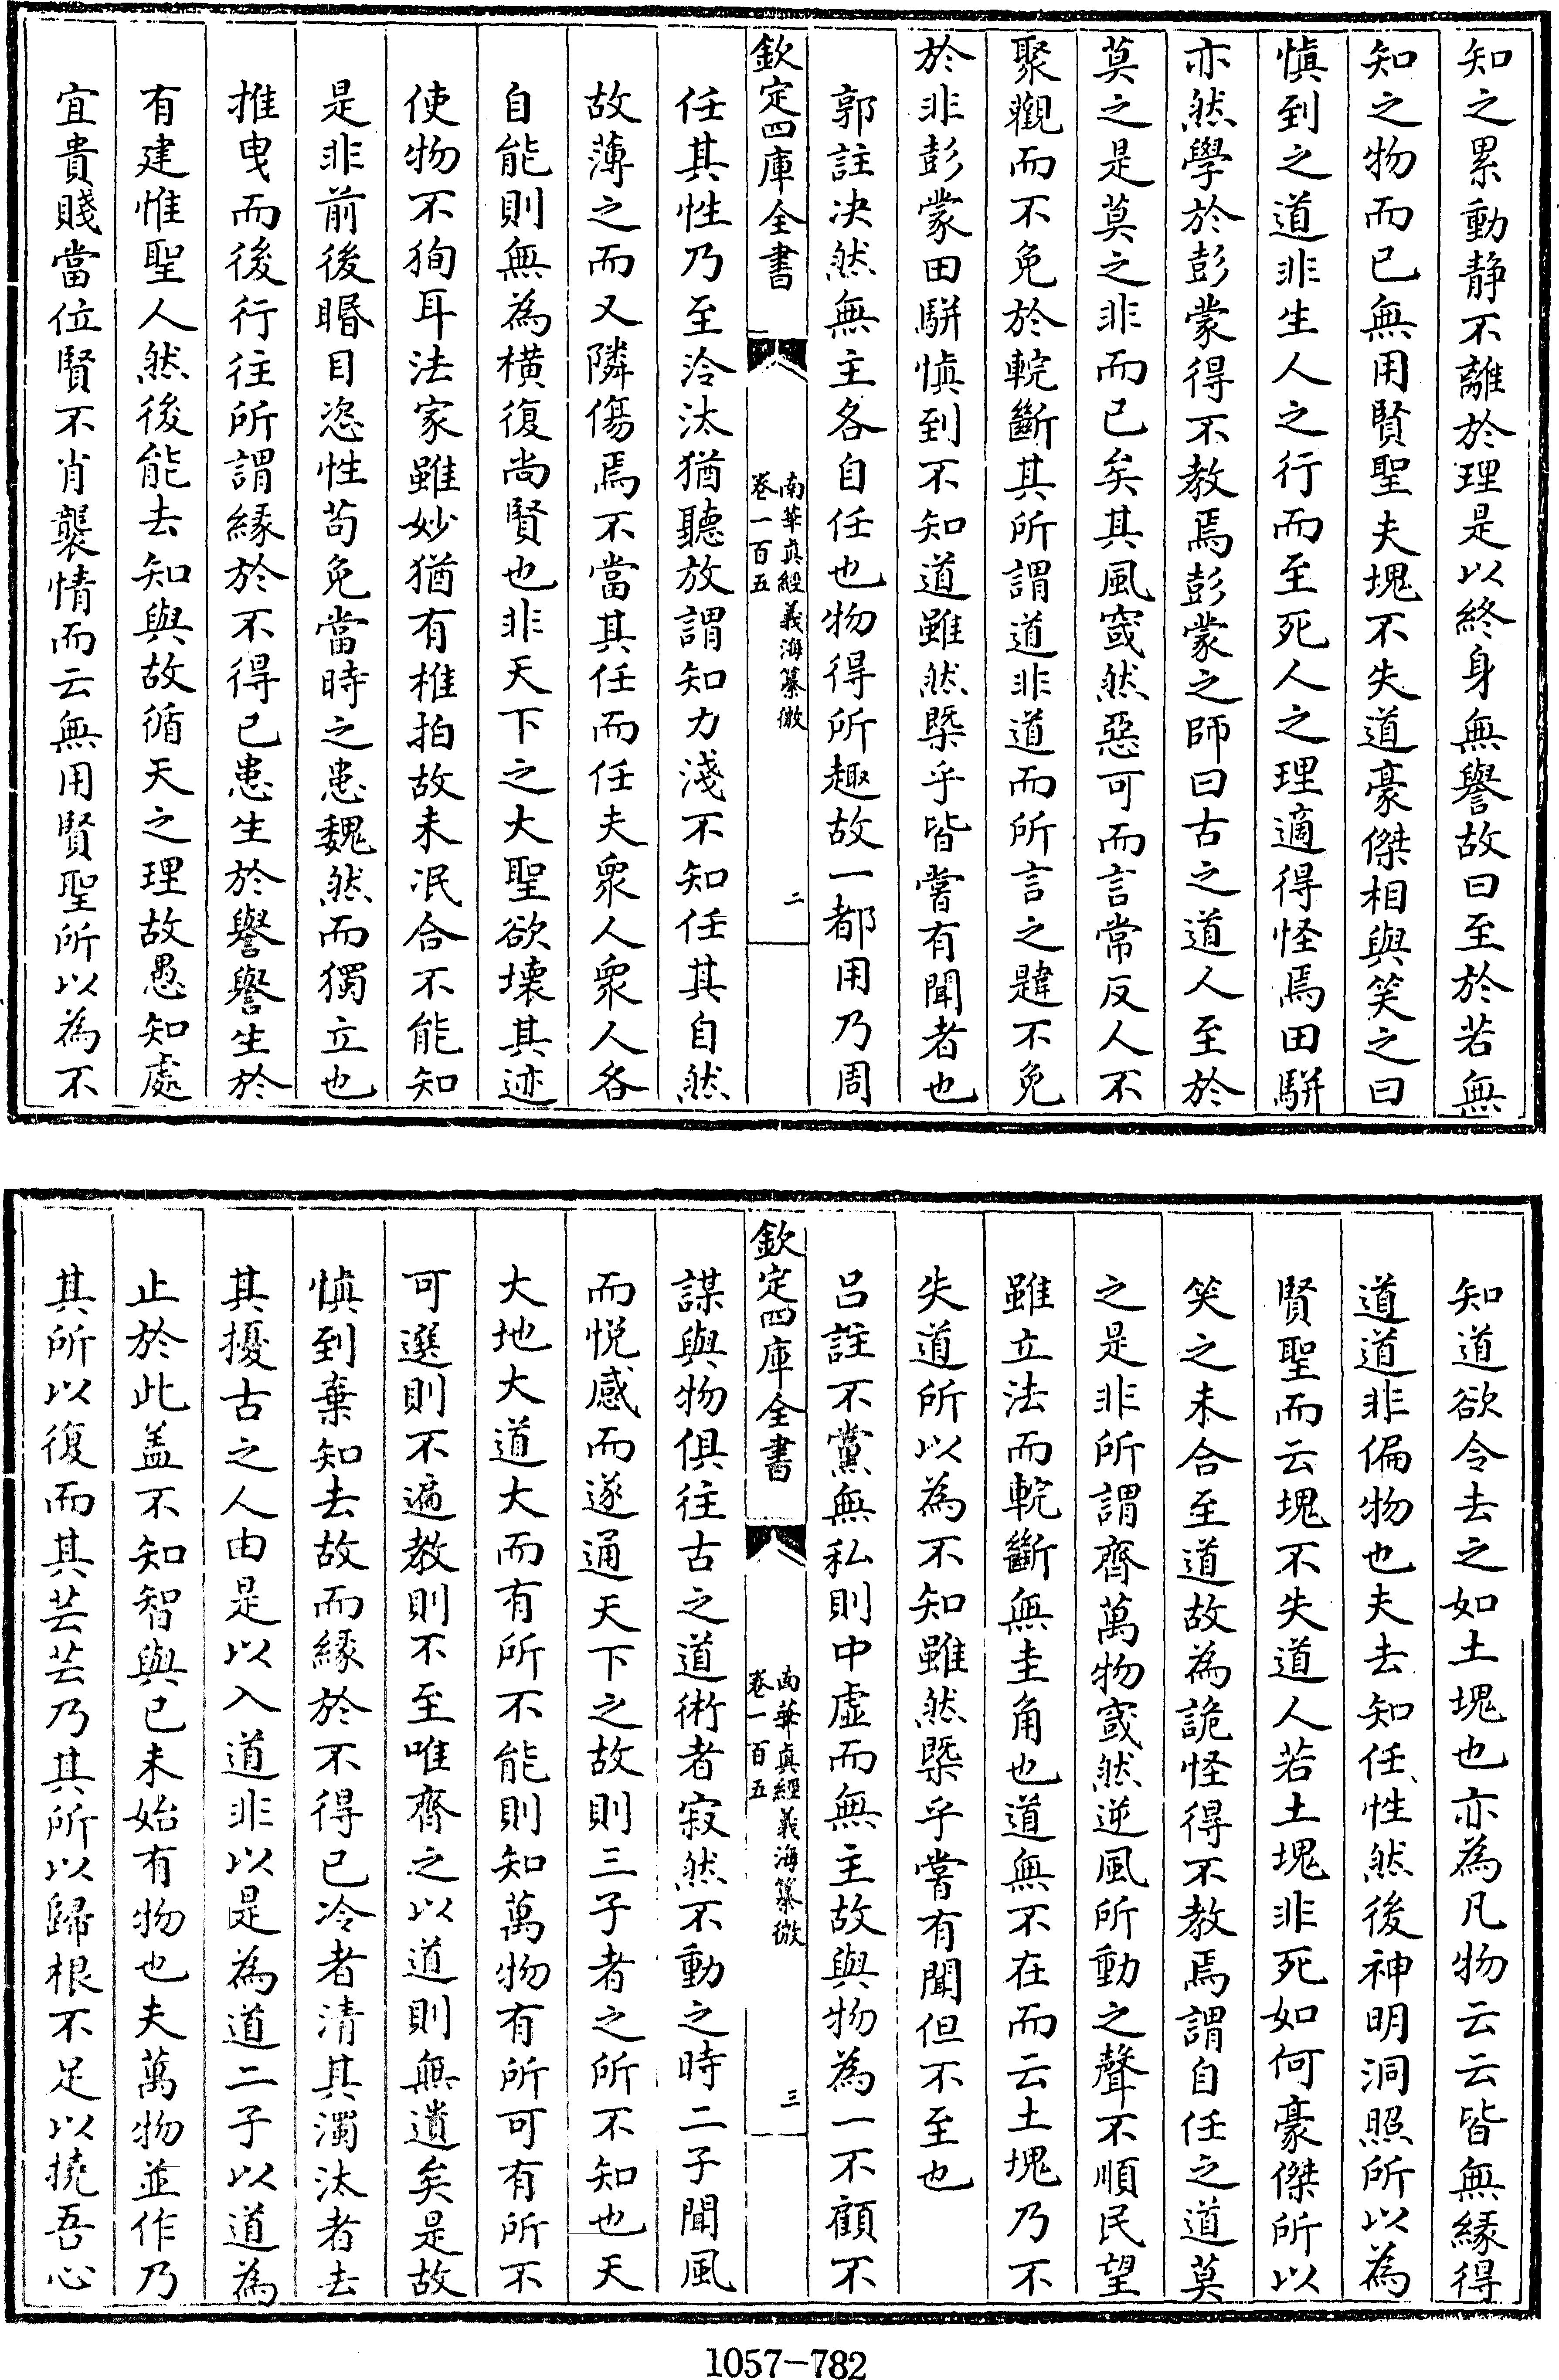 知之累動静不離於理是以終身無譽故曰至於若無
知之物而已無用賢聖夫塊不失道豪傑相與笑之曰
慎到之道非生人之行而至死人之理適得怪焉田駢
亦然學於彭蒙得不教焉彭蒙之師曰古之道人至於
莫之是莫之非而已矣其風窢然惡可而言常反人不
聚觀而不免於輐斷其所謂道非道而所言之韙不免
於非彭蒙田駢慎到不知道雖然槩乎皆嘗有聞者也
郭註决然無主各自任也物得所趣故一都用乃周
欽定四庫全書
南華真經義海纂微
卷一百五
二
任其性乃至泠汰猶聽放謂知力淺不知任其自然
故薄之而又隣傷焉不當其任而任夫衆人衆人各
自能則無為横復尚賢也非天下之大聖欲壊其迹
使物不狥耳法家雖妙猶有椎拍故未泯合不能知
是非前後睧目恣性苟免當時之患魏然而獨立也
推曳而後行往所謂縁於不得已患生於譽譽生於
有建惟聖人然後能去知與故循天之理故愚知處
宜貴賤當位賢不肖襲情而云無用賢聖所以為不
知道欲令去之如土塊也亦為凡物云云皆無縁得
道道非偏物也夫去知任性然後神明洞照所以為
賢聖而云塊不失道人若土塊非死如何豪傑所以
笑之未合至道故為詭怪得不教焉謂自任之道莫
之是非所謂齊萬物窢然逆風所動之聲不順民望
雖立法而輐斷無圭角也道無不在而云土塊乃不
失道所以為不知雖然槩乎嘗有聞但不至也
吕註不黨無私則中虚而無主故與物為一不顧不
欽定四庫全書
南華真經義海纂微
卷一百五
三
謀與物俱往古之道術者寂然不動之時二子聞風
而悦感而遂通天下之故則三子者之所不知也天
大地大道大而有所不能則知萬物有所可有所不
可選則不遍教則不至唯齊之以道則無遺矣是故
慎到棄知去故而縁於不得已冷者清其濁汰者去
其擾古之人由是以入道非以是為道二子以道為
止於此盖不知智與已未始有物也夫萬物並作乃
其所以復而其芸芸乃其所以歸根不足以撓吾心
1057-782